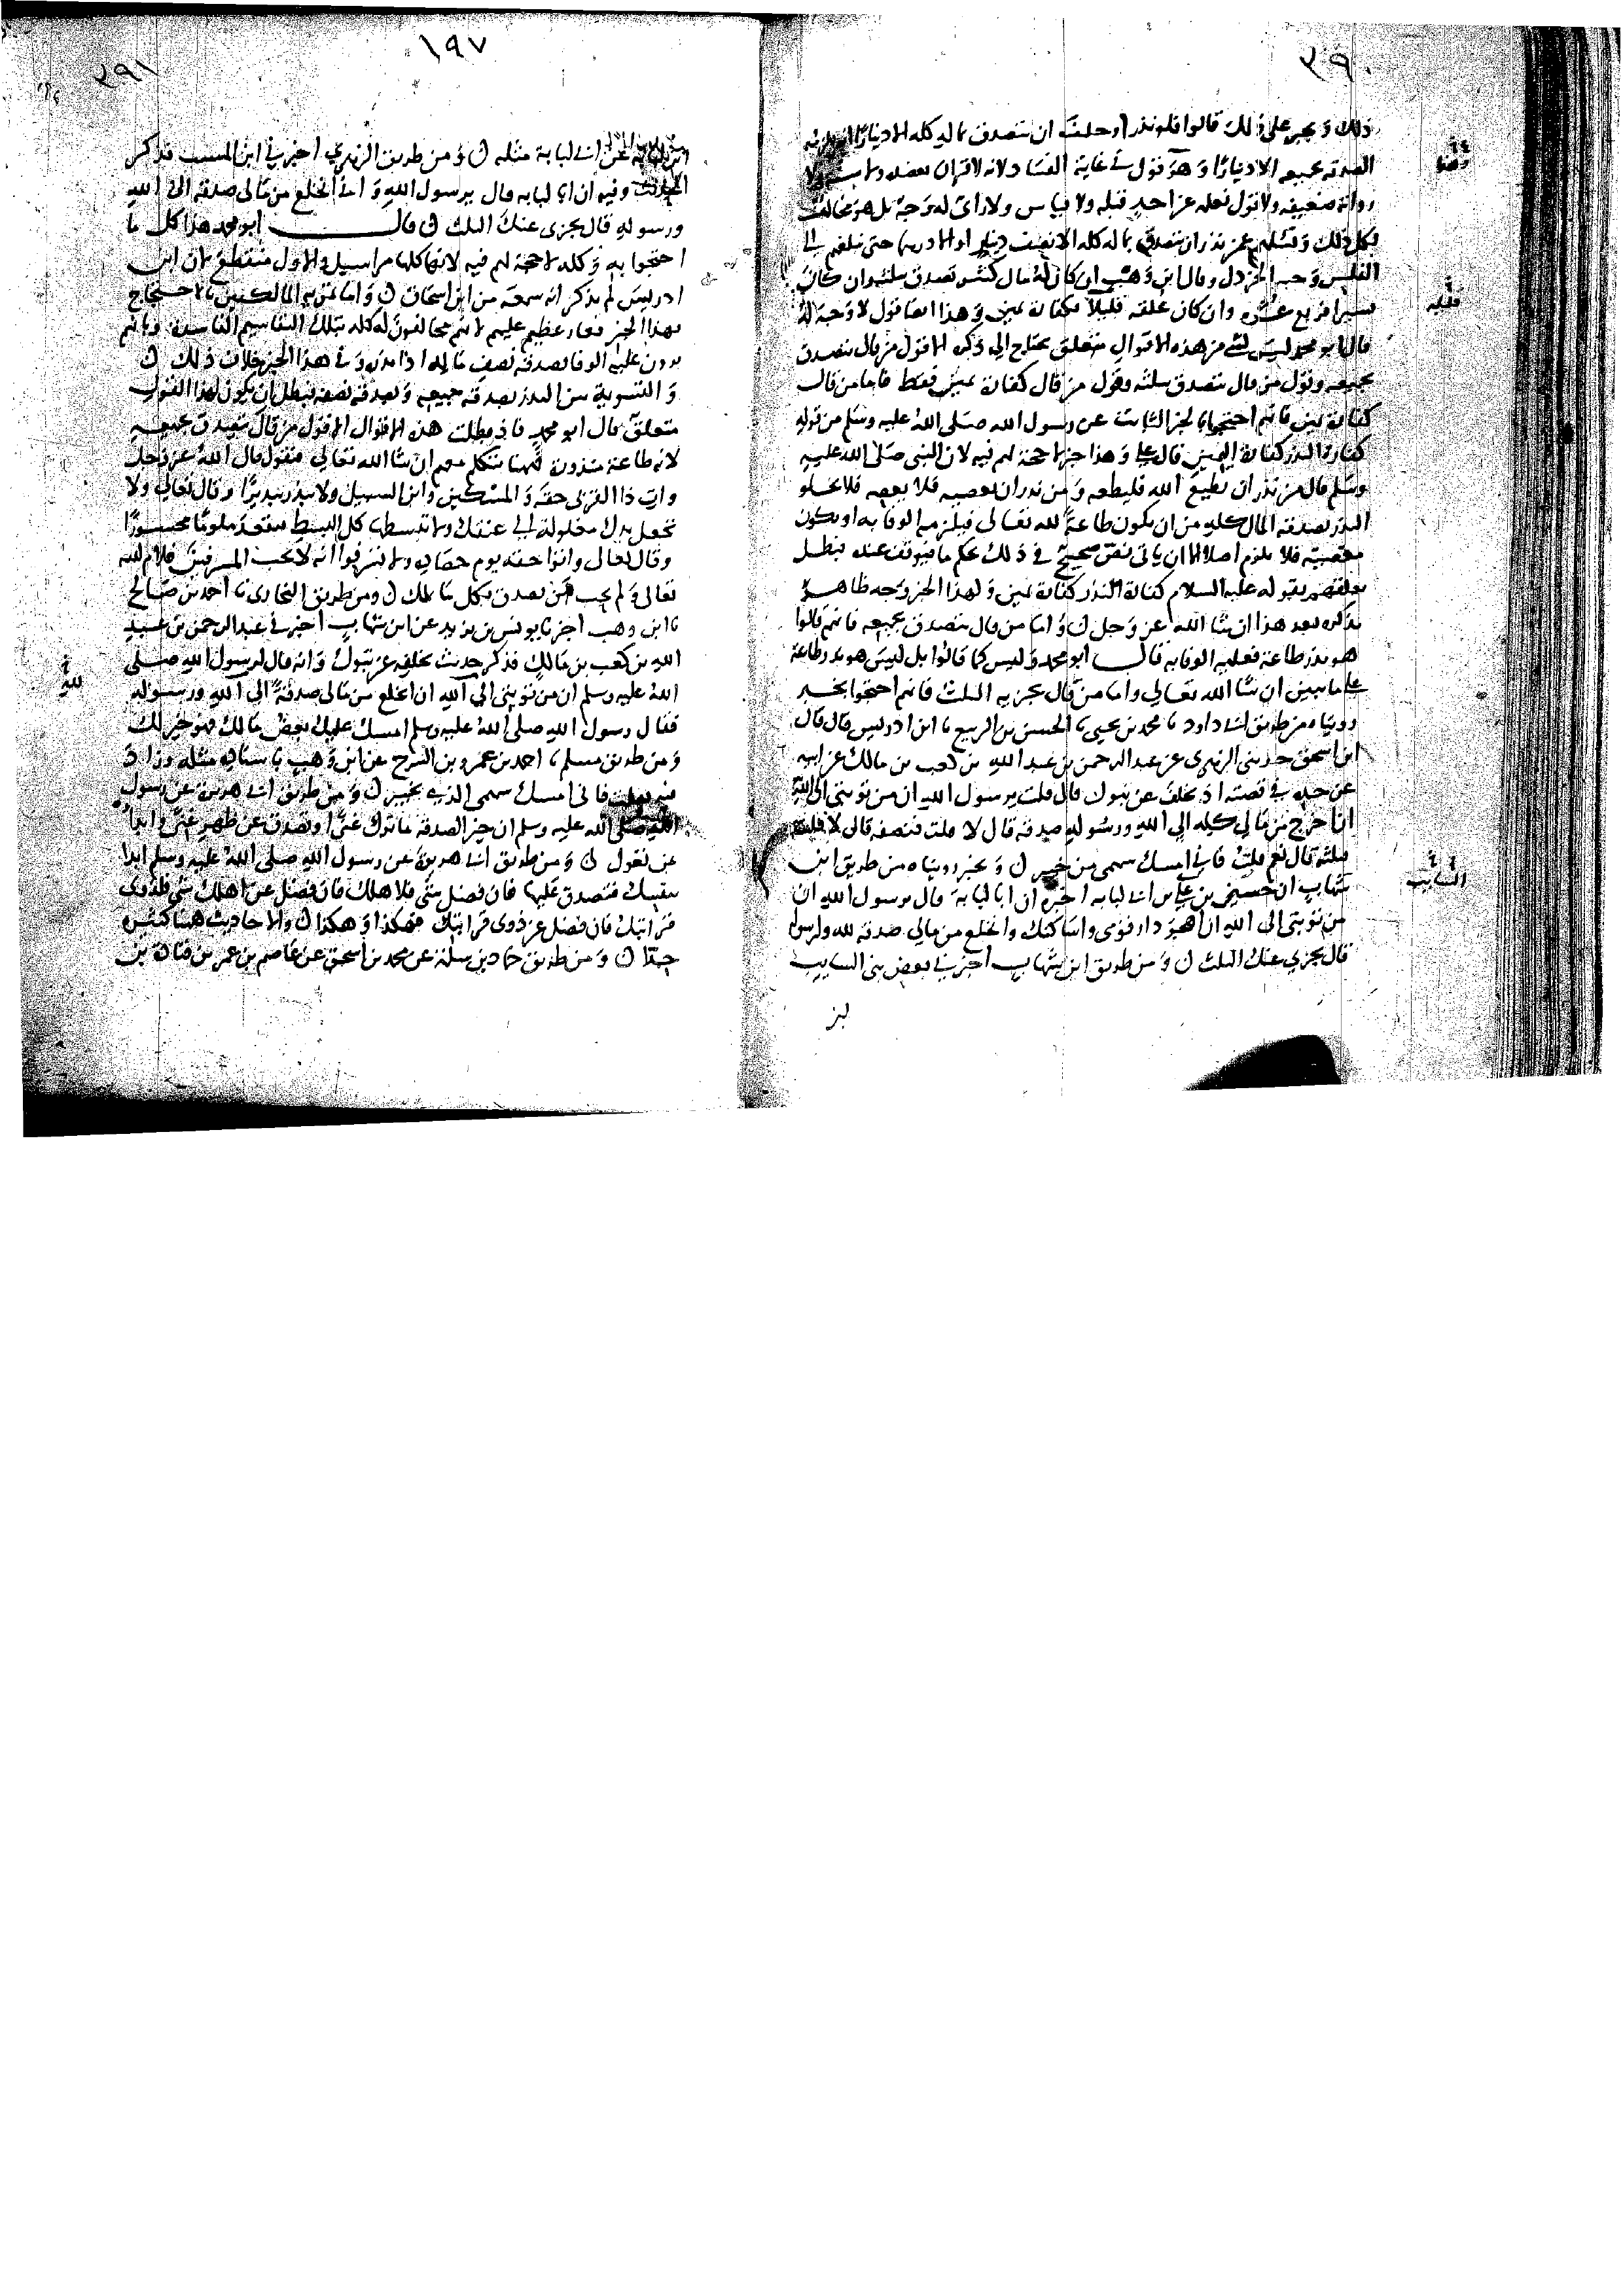 ٢٩٠
ذلك ويجبر على ذلك قالوا فلو نذر أو حلف ان يتصدق بماله كله الا دينارا
الصدقة بجميعه الا دينارا وهو قول في غاية الفساد لانه لا قران يعضده ولا سنة ولا
رواية ضعيفة ولا قول نعلمه عن احد قبله ولا قياس ولا راى له وجه بل هو مخالف
لكل ذلك ونسلهم عمن نذر ان يتصدق بماله كله الا نصف دينار او الا درهما حتى نبلغهم الى
الفلس وحبه الخردل وقال ابن وهب ان كان له مال كثير تصدق بثلثه وان كان
يسيرا فربع عشره وان كان علقه قليلا فكفارة يمين وهذا ايضا قول لا وجه له
قال ابو محمد ليس لشي من هذه الاقوال متعلق يحتاج الى ذكره الا قول من قال يتصدق
بجميعه وقول من قال يتصدق بثلثه وقول من قال كفارة يمين فقط فاما من قال
كفارة يمين فانهم احتجوا بالخبر الثابت عن رسول الله صلى الله عليه وسلم من قوله
كفارة النذر كفارة اليمين قال علي وهذا خبر لا حجة لهم فيه لان النبي صلى الله عليه
وسلم قال من نذر ان يطيع الله فليطعه ومن نذر ان يعصيه فلا يعصه فلا يخلو
النذر بصدقة المال كله من ان يكون طاعة لله تعالى فيلزمه الوفا به او يكون
معصية فلا يلزم اصلا الا ان ياتى نص صحيح في ذلك بحكم ما فيوقف عنده فبطل
تعلقهم بقوله عليه السلام كفارة النذر كفارة يمين ولهذا الخبر وجه ظاهر
نذكره بعد هذا ان شا الله عز وجل واما من قال يتصدق بجميعه فانهم قالوا
هو نذر طاعة فعليه الوفا به قال ابو محمد وليس كما قالوا بل ليس هو نذر طاعة
على ما نبين ان شا الله تعالى واما من قال يجزيه الثلث فانهم احتجوا بخبر
رويناه من طريق ابى داود نا محمد بن يحيى نا الحسن بن الربيع نا ابن ادريس قال قال
ابن اسحق حدثنى الزهرى عن عبد الرحمن بن عبد الله بن كعب بن مالك عن ابيه
عن جده في قصته اذ تخلف عن تبوك قال قلت يرسول الله ان من توبتى الى الله
ان اخرج من مالى كله الى الله ورسوله صدقة قال لا قلت فنصفه قال لا قلت
فثلثه قال نعم قلت فانى امسك سهمى من خيبر وبخبر رويناه من طريق ابن
شهاب ان حسين بن على بن ابى لبابة اخبره ان ابا لبابة قال يرسول الله ان
من توبتى الى الله ان اهجر دار قومى واساكنك وانخلع من مالى صدقة لله ولرسوله
قال يجزي عنك الثلث ومن طريق ابن شهاب اخبرنى بعض بنى السايب
السايب
١٩٧
٢٩١
عن ابى لبابة مثله ومن طريق الزهري اخبرني ابن المسيب فذكر
الحديث وفيه ان ابا لبابه قال يرسول الله وانى انخلع من مالى صدقة الى الله
ورسوله قال يجزى عنك الثلث قال ابو محمد هذا كل ما
احتجوا به وكله لا حجة لهم فيه لانها كلها مراسيل والاول منقطع لان ابن
ادريس لم يذكر انه سمعه من ابن اسحاق واما تمويه المالكيين بالاحتجاج
بهذا الخبر فعار عظيم عليهم لانهم مخالفون له كله بتلك التقاسيم الفاسدة وبانهم
يرون عليه الوفا بصدقة نصف ماله اذا نذره وفي هذا الخبر خلاف ذلك
والتسوية بين النذر بصدقة جميعه وبصدقة نصفه فبطل ان يكون لهذا القول
متعلق قال ابو محمد فاذ بطلت هذه الاقوال الا قول من قال يتصدق بجميعه
لانه طاعة منذورة فهنا نتكلم معهم ان شا الله تعالى فنقول قال الله عز وجل
وات ذا القربى حقه والمسكين وابن السبيل ولا تبذر تبذيرا وقال تعالى ولا
تجعل يدك مغلولة الى عنقك ولا تبسطها كل البسط فتقعد ملوما محسورا
وقال تعالى واتوا حقه يوم حصاده ولا تسرفوا انه لا يحب المسرفين فلام الله
تعالى ولم يحب من تصدق بكل ما يملك ومن طريق البخارى نا احمد بن صالح
نا ابن وهب اخبرنا يونس بن يزيد عن ابن شهاب اخبرني عبد الرحمن بن عبد
الله بن كعب بن مالك فذكر حديث تخلفه عن تبوك وانه قال لرسول الله صلى
لله
الله عليه وسلم ان من توبتى الى الله ان انخلع من مالى صدقة الى الله ورسوله
فقال رسول الله صلى الله عليه وسلم امسك عليك بعض مالك فهو خير لك
ومن طريق مسلم نا احمد بن عمرو بن السرح عن ابن وهب باسناده مثله وزاد
فيه فقلت فانى امسك سهمى الذي بخيبر ومن طريق ابى هريرة عن رسول
الله صلى الله عليه وسلم ان خير الصدقة ما ترك غنى او تصدق عن ظهر غنى وابدا
بمن تعول ومن طريق ابى هريرة عن رسول الله صلى الله عليه وسلم ابدا
بنفسك فتصدق عليها فان فضل شي فلاهلك فان فضل عن اهلك شي فلذوى
قرابتك فان فضل عن ذوى قرابتك فهكذا وهكذا والاحاديث هنا كثيرة
جدا ومن طريق حماد بن سلمة عن محمد بن اسحق عن عاصم بن عمر بن قتادة بن